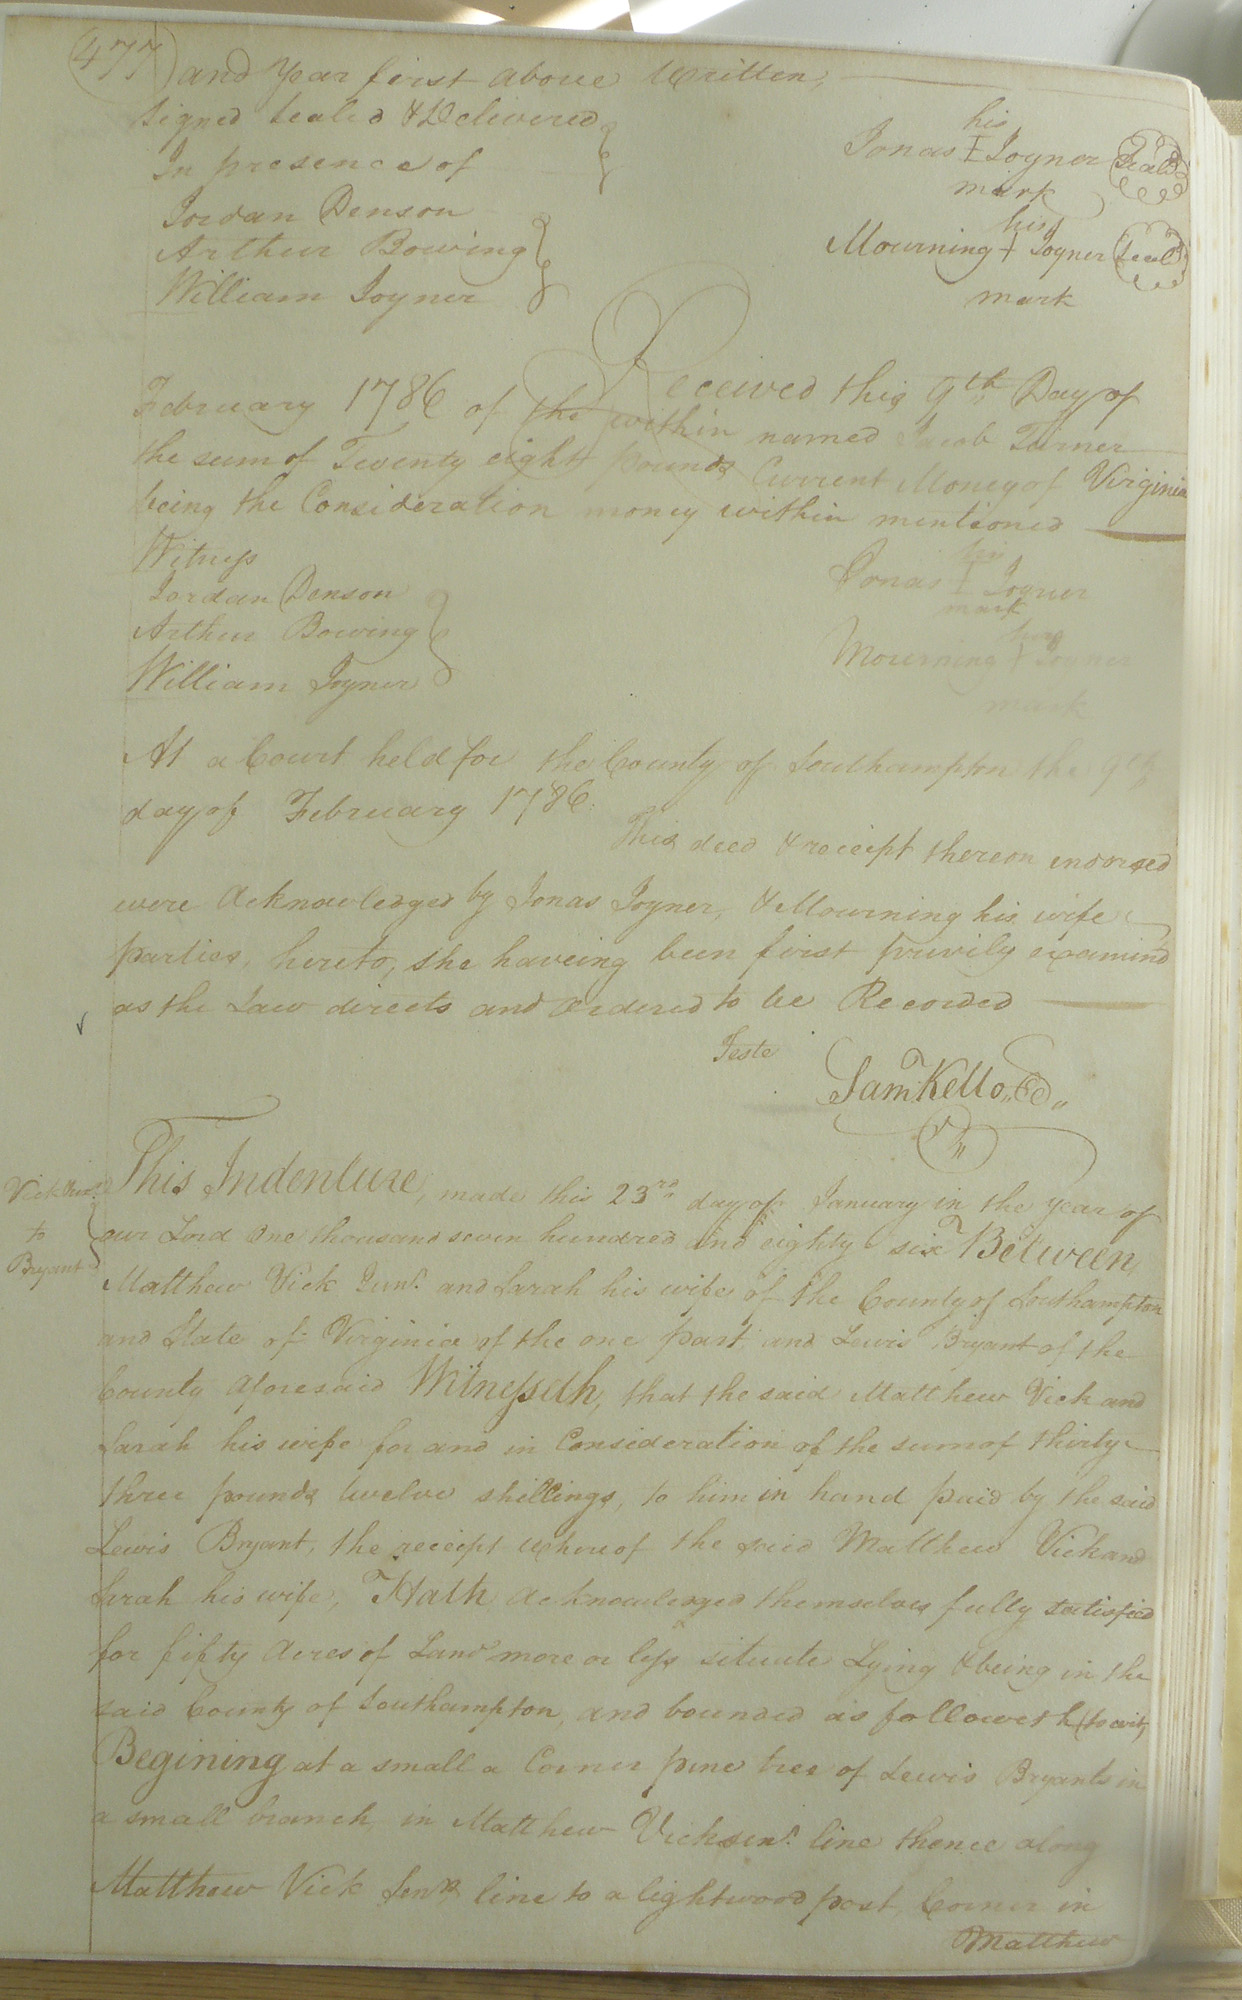 477
and Year first above Written,
Signed Sealed & Delivered
In presence of
Jordan Denson
Arthur Bowing
William Joyner
his
Jonas I Joyner (Seal)
mark
his
Mourning + Joyner (Seal)
mark
Received this 9th Day of
February 1786 of the within named Jacob Turner
the sum of Twenty eight pounds Current Money of Virginia
being the Consideration money within mentioned
Witness
Jordan Denson
Arthur Bowing
William Joyner
his
Jonas I Joyner
mark
Mourning + Joyner
mark
At a Court held for the County of Southampton the 9th
day of February 1786.
This deed & receipt thereon endorsed
were Acknowledged by Jonas Joyner, & Mourning his wife
parties, hereto, she haveing been first privily examind
as the Law directs and Ordered to be Recorded
Teste
Sam Kello, C
Vick
to
Bryant
This Indenture, made this 23rd day of January in the year of
our Lord One thousand seven hundred and eighty six Between
Matthew Vick Junr. and Sarah his wife of the County of Southampton
and State of Virginia of the one part, and Lewis Bryant of the
County aforesaid Witnesseth, that the said Matthew Vick and
Sarah his wife for and in Consideration of the sum of thirty
three pounds twelve shillings, to him in hand paid by the said
Lewis Bryant, the receipt whereof the said Matthew Vick and
Sarah his wife, Hath Acknowledged themselves fully satisfied
for fifty Acres of Land more or less situate Lying & being in the
said County of Southampton, and bounded as followeth (to wit,
Begining at a small a Corner pine tree of Lewis Bryants in
a small branch, in Matthew Vick senr. line thence along
Matthew Vick Senr. line to a lightwood post, Corner in
Matthew